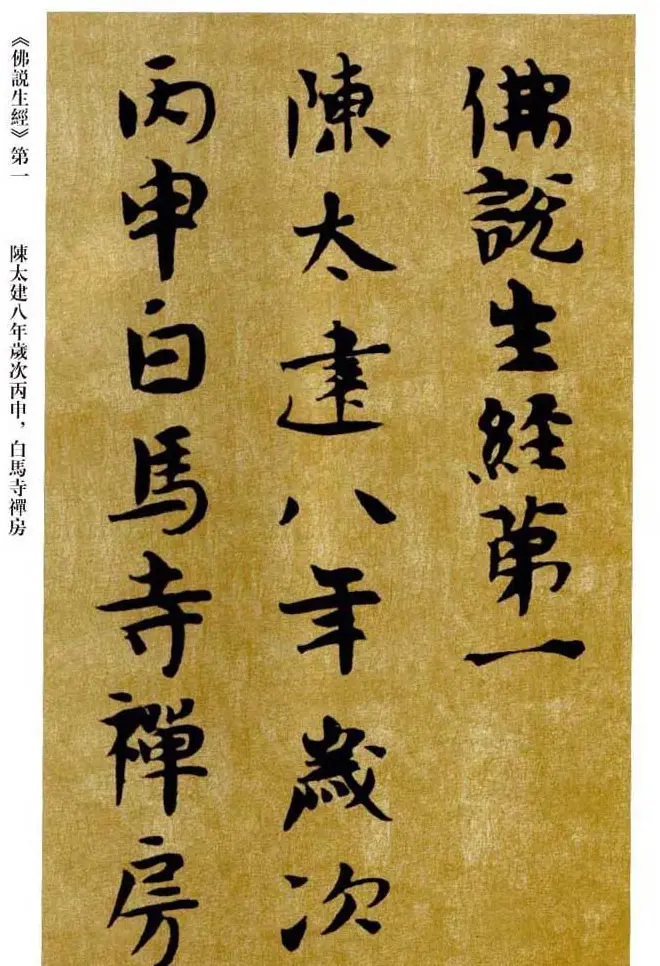 佛説生經第一
陳太建八年歲次
丙申白馬寺禪房
《佛説生經》第一　陳太建八年歲次丙申，白馬寺禪房